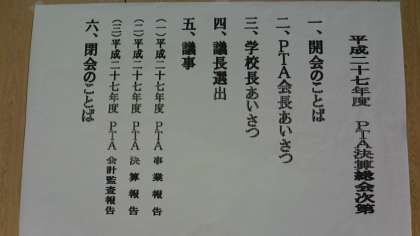 平成二十七年度 PTA決算総会次第
一、開会のことば
二、PTA会長あいさつ
三、学校長あいさつ
四、議長選出
五、議事
(一)平成二十七年度 PTA事業報告
(二)平成二十七年度 PTA決算報告
(三)平成二十七年度 PTA会計監査報告
六、閉会のことば